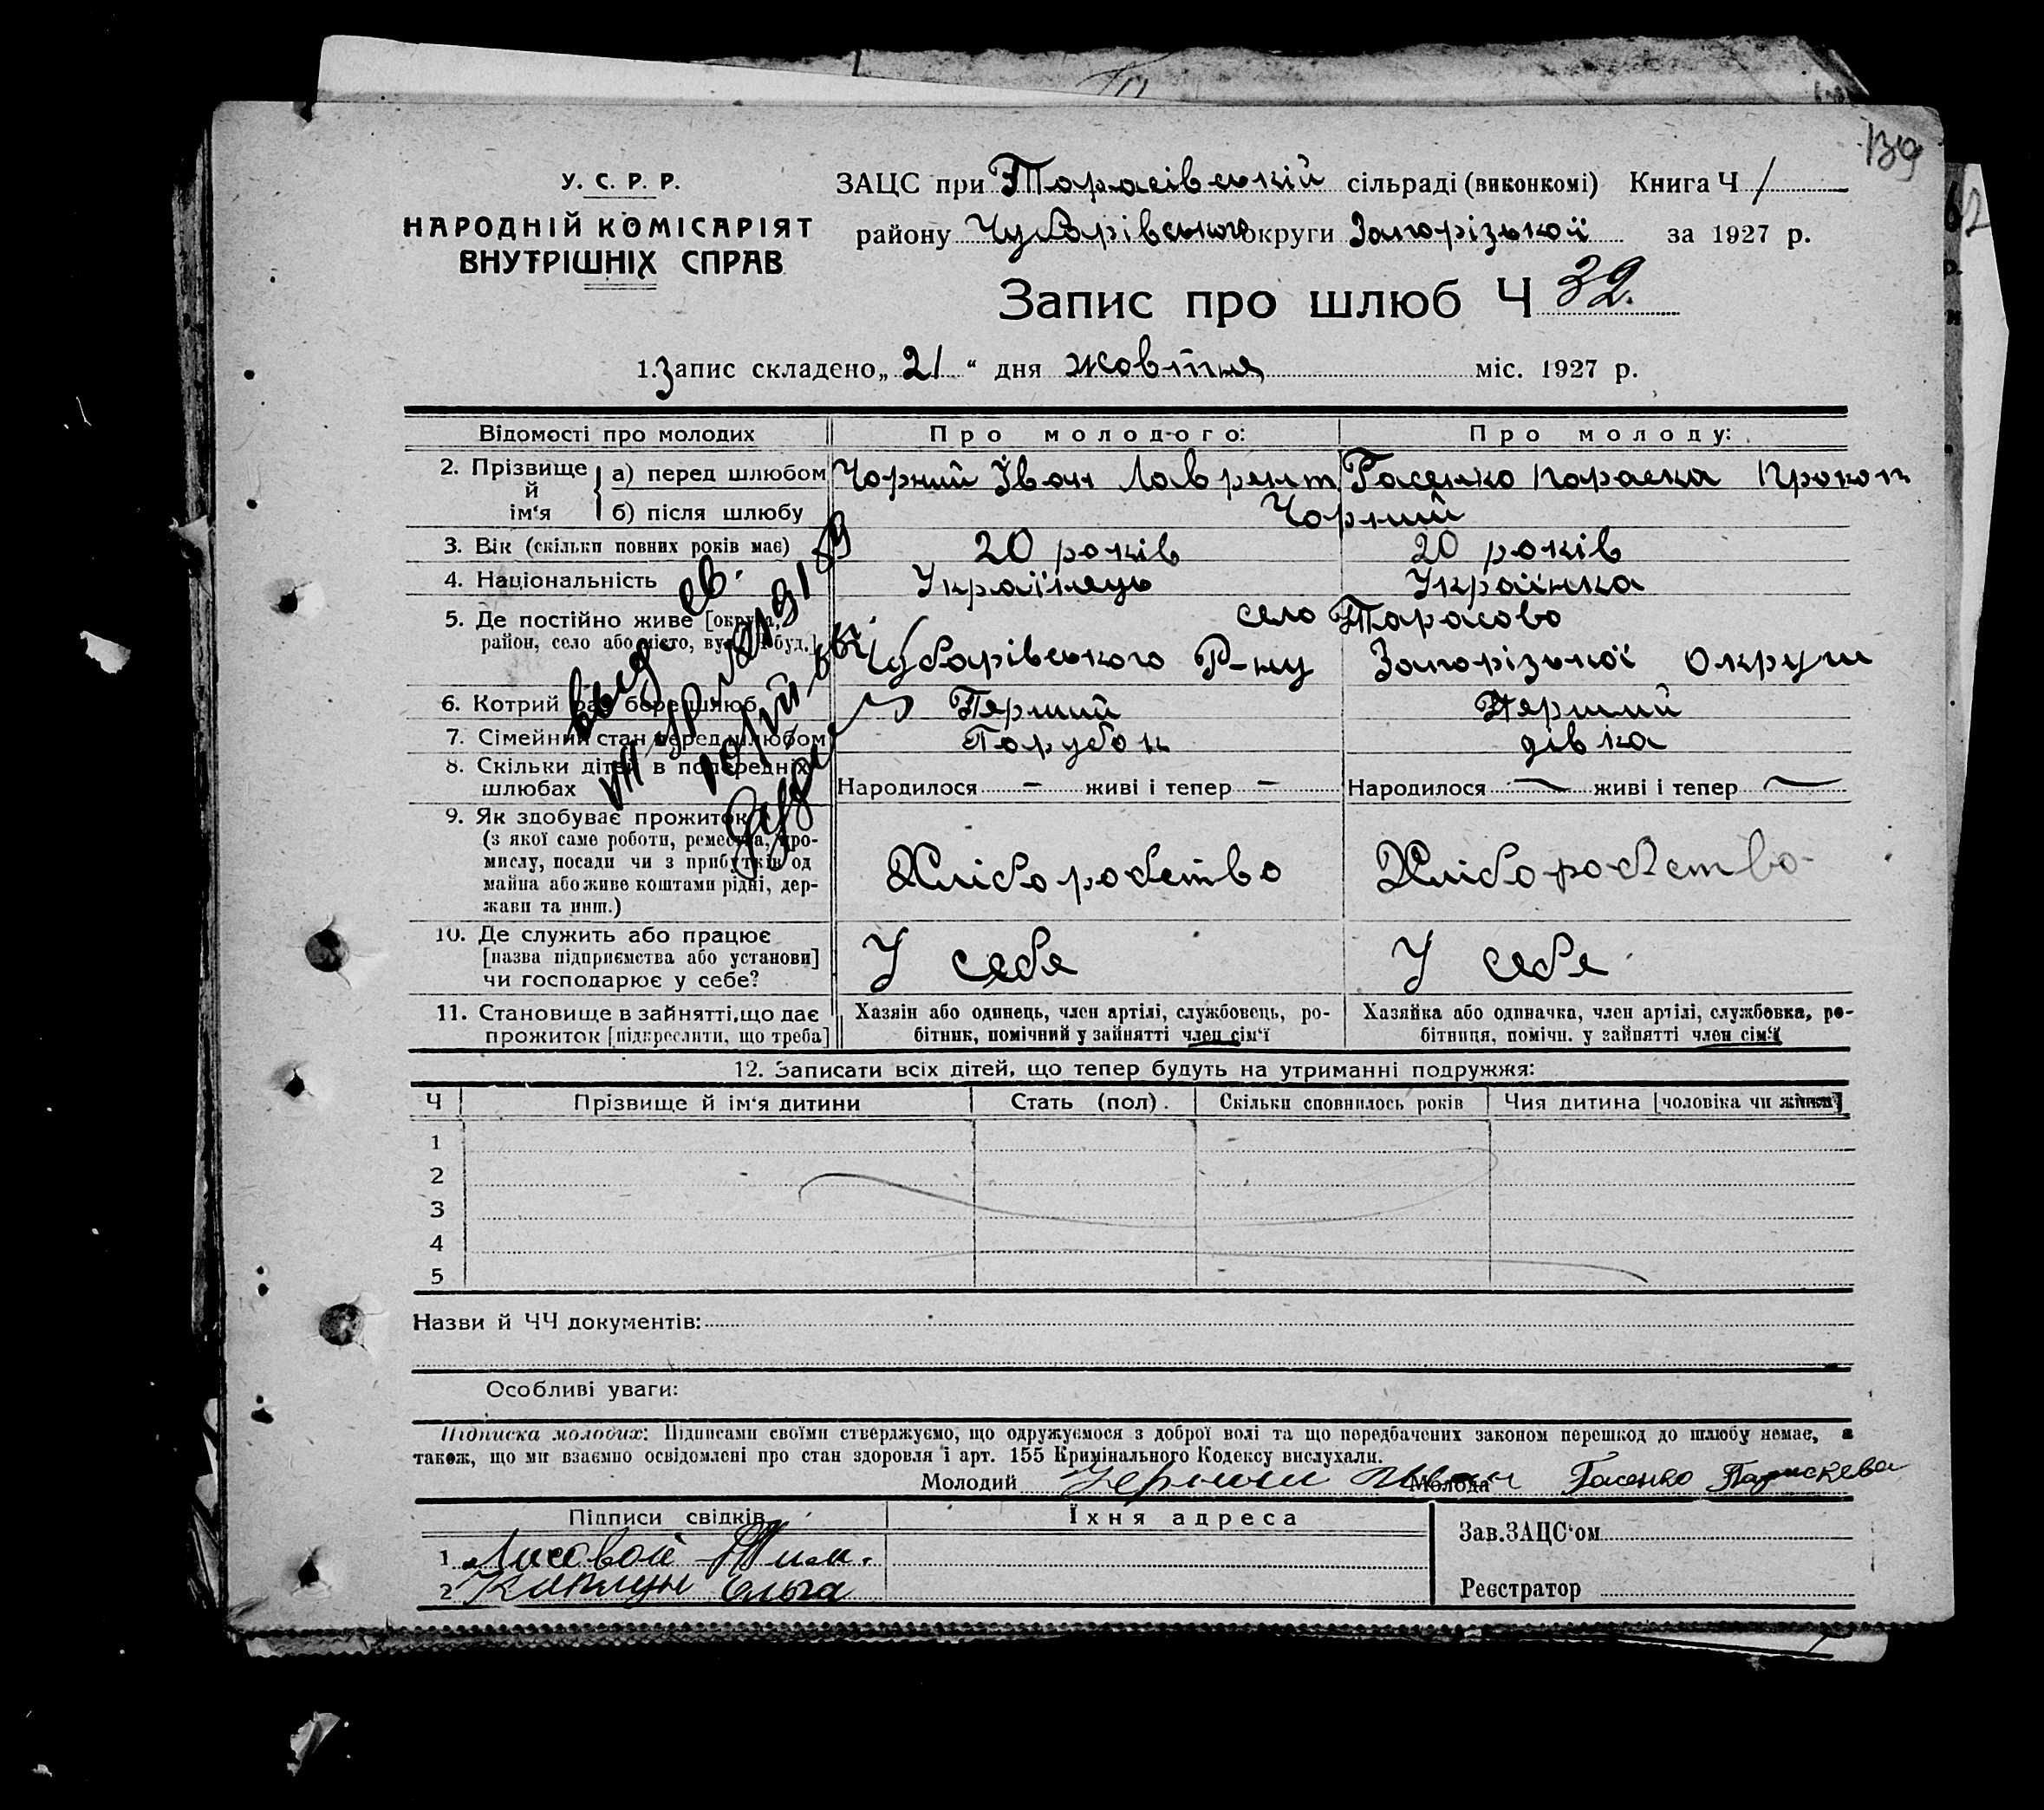 139
У. С. Р. Р.
НАРОДНІЙ КОМІСАРІЯТ
ВНУТРІШНІХ СПРАВ
ЗАЦС при Тарасівській сільраді (виконкомі) Книга Ч 1
району Чубарівського округи Запорізької за 1927 р.
Запис про шлюб Ч 32.
1. Запис складено „ 21 “ дня жовтня міс. 1927 р.
Відомості про молодих
Про молодого:
Про молоду:
2. Прізвище й ім‘я
а) перед шлюбом Чорний Іван Лаврент Гасенко Параска Прокоп
б) після шлюбу Чорний
3. Вік (скільки повних років має) 20 років 20 років
4. Національність Українець Українка
5. Де постійно живе [округа, село Тарасово
район, село або місто, вул. Ч буд.] Чубарівського Р-ну Запорізької Округи
6. Котрий раз бере шлюб Перший Перший
7. Сімейний стан перед шлюбом Парубок дівка
8. Скільки дітей в попередніх
шлюбах Народилося — живі і тепер — Народилося — живі і тепер —
9. Як здобуває прожиток
(з якої саме роботи, ремества, про-
мислу, посади чи з прибутків од
майна або живе коштами рідні, дер-
жави та инш.)
Хліборобство Хліборобство
10. Де служить або працює
[назва підприємства або установи]
чи господарює у себе?
У себе У себе
11. Становище в зайнятті, що дає
прожиток [підкреслити, що треба]
Хазяін або одинець, член артілі, службовець, ро-
бітник, помічний у зайнятті член сім‘ї
Хазяйка або одиначка, член артілі, службовка, ро-
бітниця, помічн. у зайнятті член сім‘ї
12. Записати всіх дітей, що тепер будуть на утриманні подружжя:
Ч Прізвище й ім‘я дитини Стать (пол). Скільки сповнилось років Чия дитина [чоловіка чи жінки]
1
2
3
4
5
Назви й ЧЧ документів:
Особливі уваги:
Підписка молодих: Підписами своїми стверджуємо, що одружуємося з доброї волі та що передбачених законом перешкод до шлюбу немає, а
також, що ми взаємно освідомлені про стан здоровля і арт. 155 Кримінального Кодексу вислухали.
Молодий Іван Молода Гасенко Параскева
Підписи свідків Їхня адреса
1 Лисовой Тим.
2 Каплун Ольга
Зав. ЗАЦС‘ом
Реєстратор